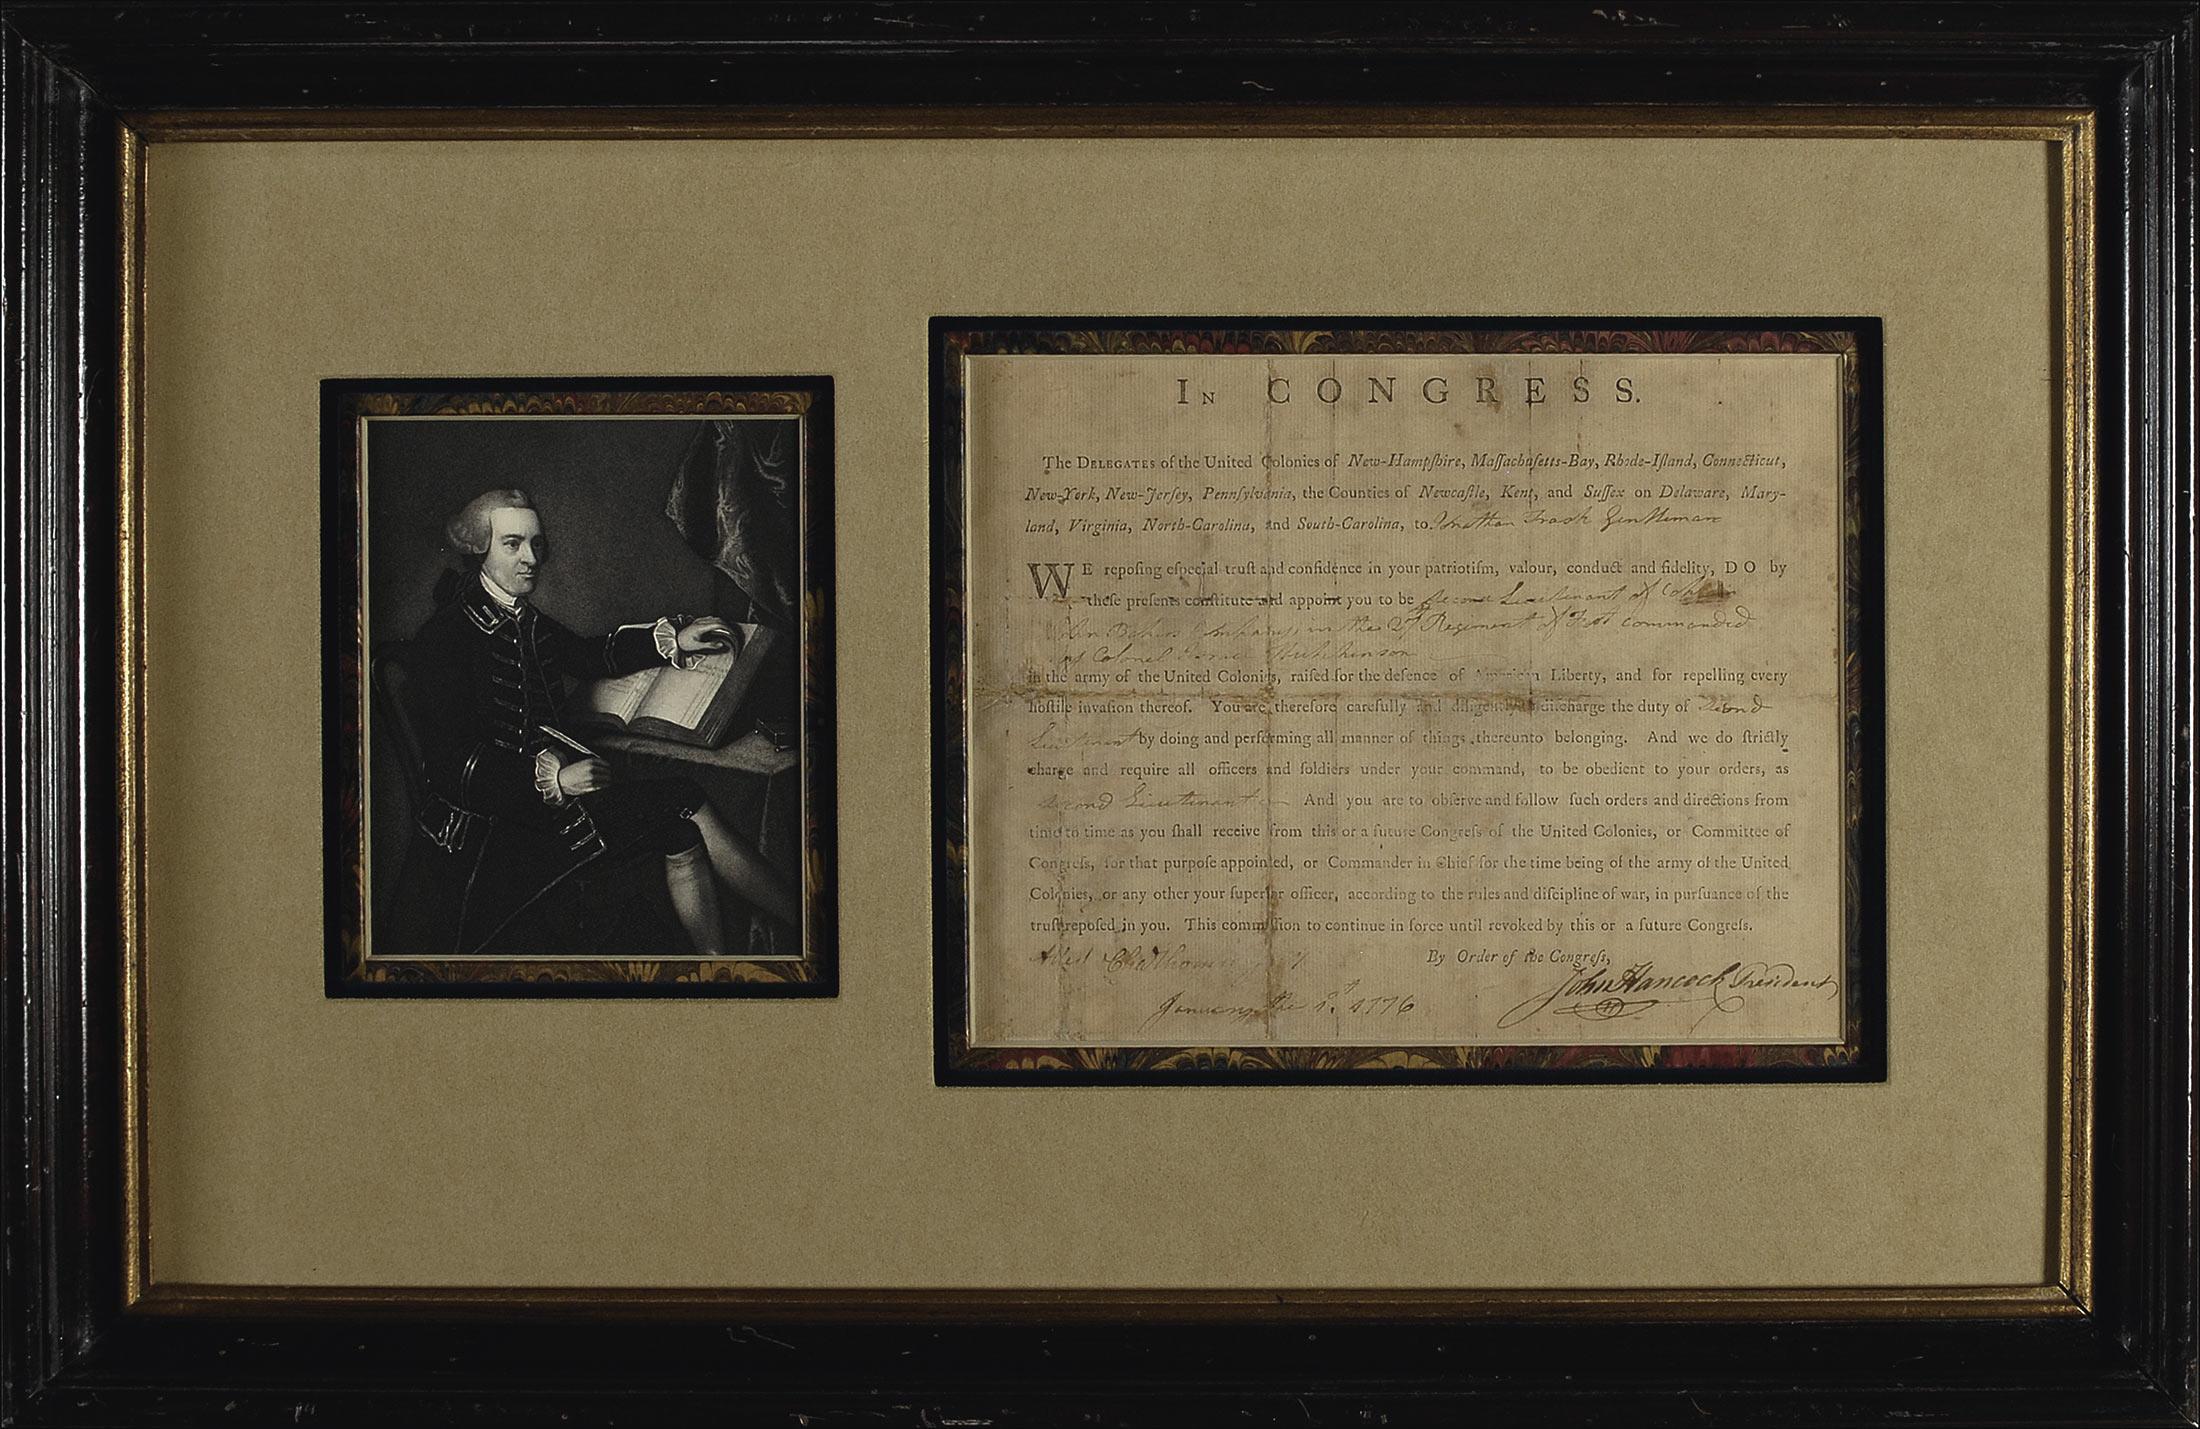 In CONGRESS.
The DELEGATES of the United Colonies of New-Hampſhire, Maſſachuſetts-Bay, Rhode-Iſland, Connecticut,
New-York, New-Jerſey, Pennſylvania, the Counties of Newcaſtle, Kent, and Suſſex on Delaware, Mary-
land, Virginia, North-Carolina, and South-Carolina, to Jonathan Trask Gentleman
WE repoſing eſpecial truſt and confidence in your patriotiſm, valour, conduct and fidelity, DO by
theſe preſents conſtitute and appoint you to be Second Lieutenant of Captain
John Bakers Company, in the 27 Regiment of Foot commanded
by Colonel Hutchinson
in the army of the United Colonies, raiſed for the defence of American Liberty, and for repelling every
hoſtile invaſion thereof. You are therefore carefully and diligently to diſcharge the duty of Second
Lieutenant by doing and performing all manner of things thereunto belonging. And we do ſtrictly
charge and require all officers and ſoldiers under your command, to be obedient to your orders, as
Second Lieutenant And you are to obſerve and follow ſuch orders and directions from
time to time as you ſhall receive from this or a future Congreſs of the United Colonies, or Committee of
Congreſs, for that purpoſe appointed, or Commander in Chief for the time being of the army of the United
Colonies, or any other your ſuperior officer, according to the rules and diſcipline of war, in purſuance of the
truſt repoſed in you. This commiſſion to continue in force until revoked by this or a future Congreſs.
Attest Cha Thomson By Order of the Congreſs,
John Hancock President
January the 1776